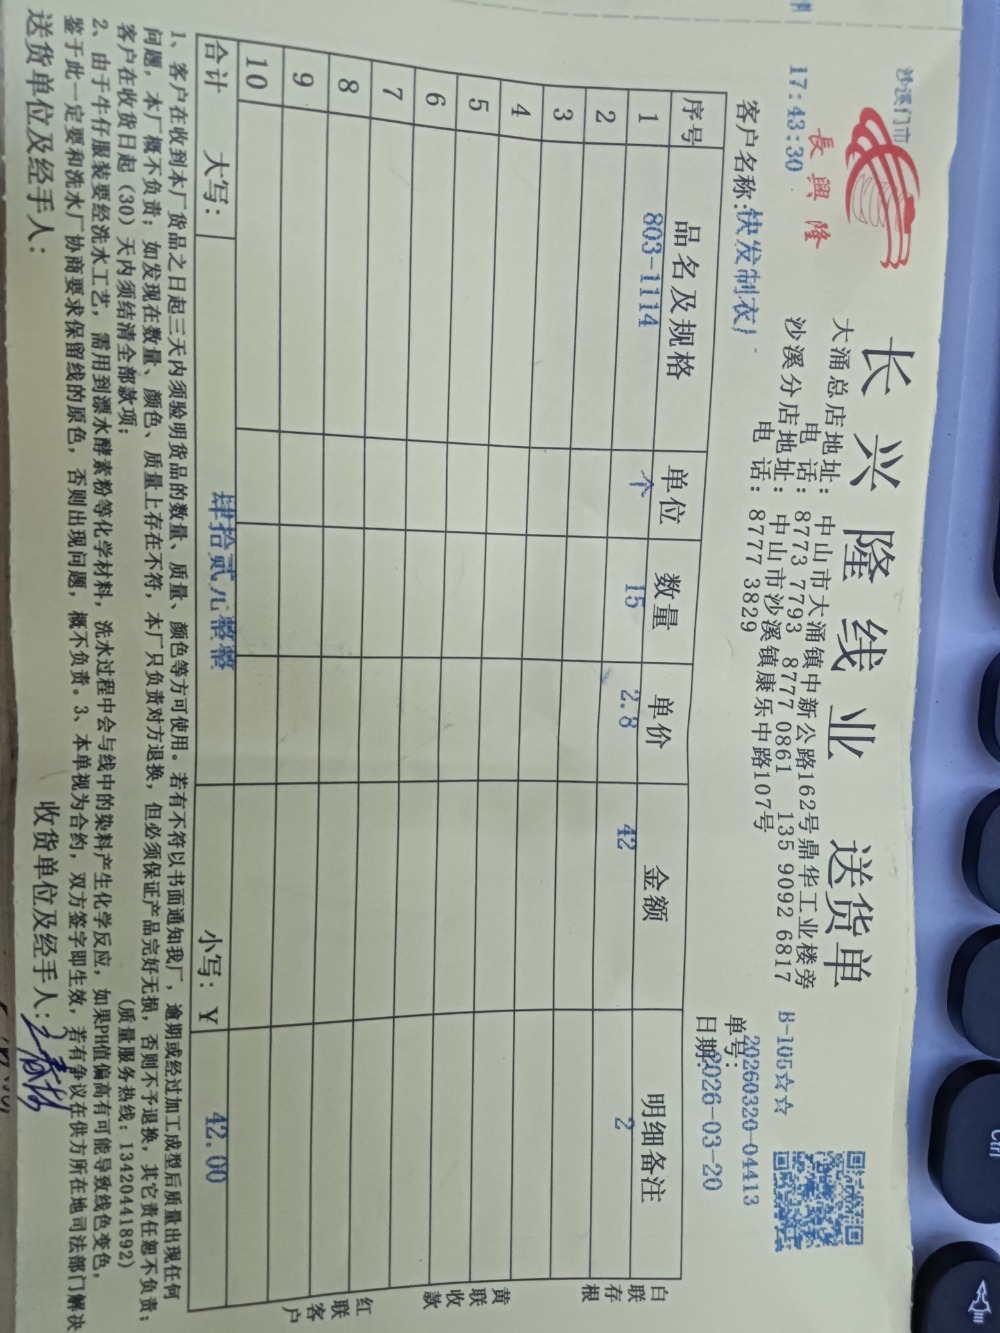 沙溪门市
17:43:30
長興隆
长兴隆线业 送货单
大涌总店地址：中山市大涌镇中新公路162号鼎华工业楼旁
电 话：8773 7793 8777 0861 135 9092 6817
沙溪分店地址：中山市沙溪镇康乐中路107号
电 话：8777 3829
B-105☆☆
单号：20260320-04413
日期：2026-03-20
客户名称：快发制衣厂
序号 品名及规格 单位 数量 单价 金额 明细备注
1 803-1114 个 15 2.8 42 2
2
3
4
5
6
7
8
9
10
合计 大写： 肆拾贰元整整 小写：¥ 42.00
白联存根
黄联收款
红联客户
1、客户在收到本厂货品之日起三天内须验明货品的数量、质量、颜色等方可使用。若有不符以书面通知我厂，逾期或经过加工成型后质量出现任何
问题，本厂概不负责；如发现在数量、颜色、质量上存在不符，本厂只负责对方退换，但必须保证产品完好无损，否则不予退换，其它责任恕不负责；
客户在收货日起（30）天内须结清全部款项； （质量服务热线：13420441892）
2、由于牛仔服装要经洗水工艺，需用到漂水酵素粉等化学材料，洗水过程中会与线中的染料产生化学反应，如果PH值偏高有可能导致线色变色，
鉴于此一定要和洗水厂协商要求保留线的原色，否则出现问题，概不负责。3、本单视为合约，双方签字即生效，若有争议在供方所在地司法部门解决
送货单位及经手人： 收货单位及经手人：
Ctrl